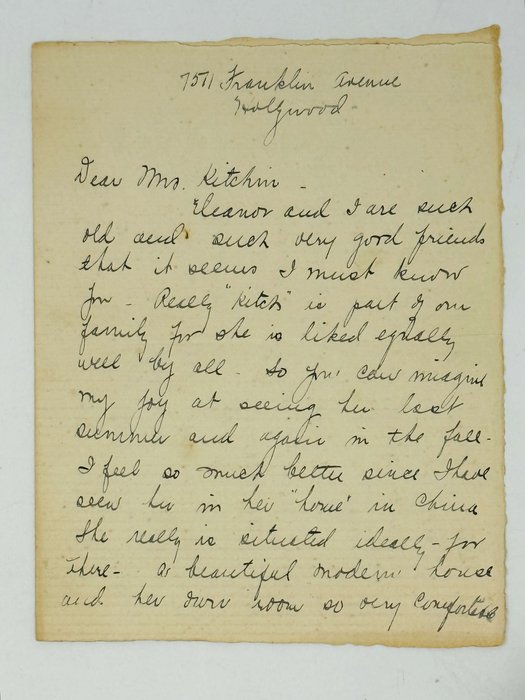 7511 Franklin Avenue
Hollywood
Dear Mrs. Kitchin -
Eleanor and I are such
old and such very good friends
that it seems I must know
you - Really "Kitch" is part of our
family for she is liked equally
well by all - So you can imagine
my joy at seeing her last
summer and again in the fall -
I feel so much better since I have
seen her in her "home" in China
She really is situated ideally - for
there - a beautiful modern house
and her own room so very comfortable